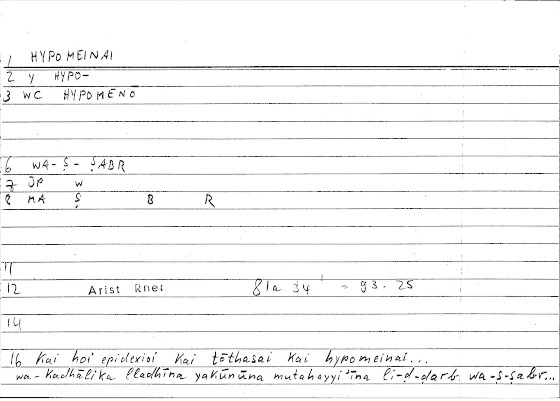 1 HYPOMEINAI
2 Y HYPO-
3 WC HYPOMENŌ
6 WA-Ṣ-ṢABR
7 JP W
8 MA Ṣ B R
11
12 Arist Rhet 81a 34 = 93.25
14
16 Kai hoi epidexioi kai tōthasai kai hypomeinai...
wa-kadhālika lladhīna yakūnūna mutahayyi'īna li-ḍ-ḍarb wa-ṣ-ṣabr...